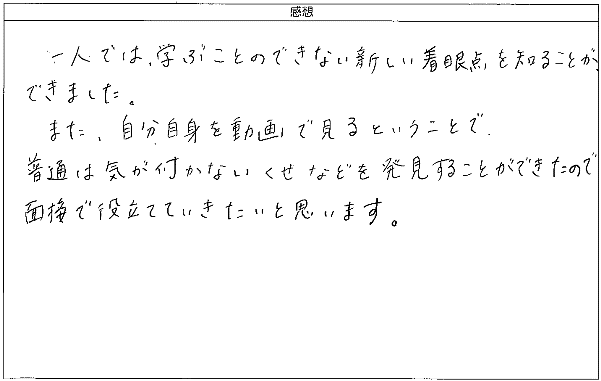 感想
一人では、学ぶことのできない新しい着眼点を知ることが
できました。
また、自分自身を動画で見るということで、
普通は気が付かないくせなどを発見することができたので
面接で役立てていきたいと思います。